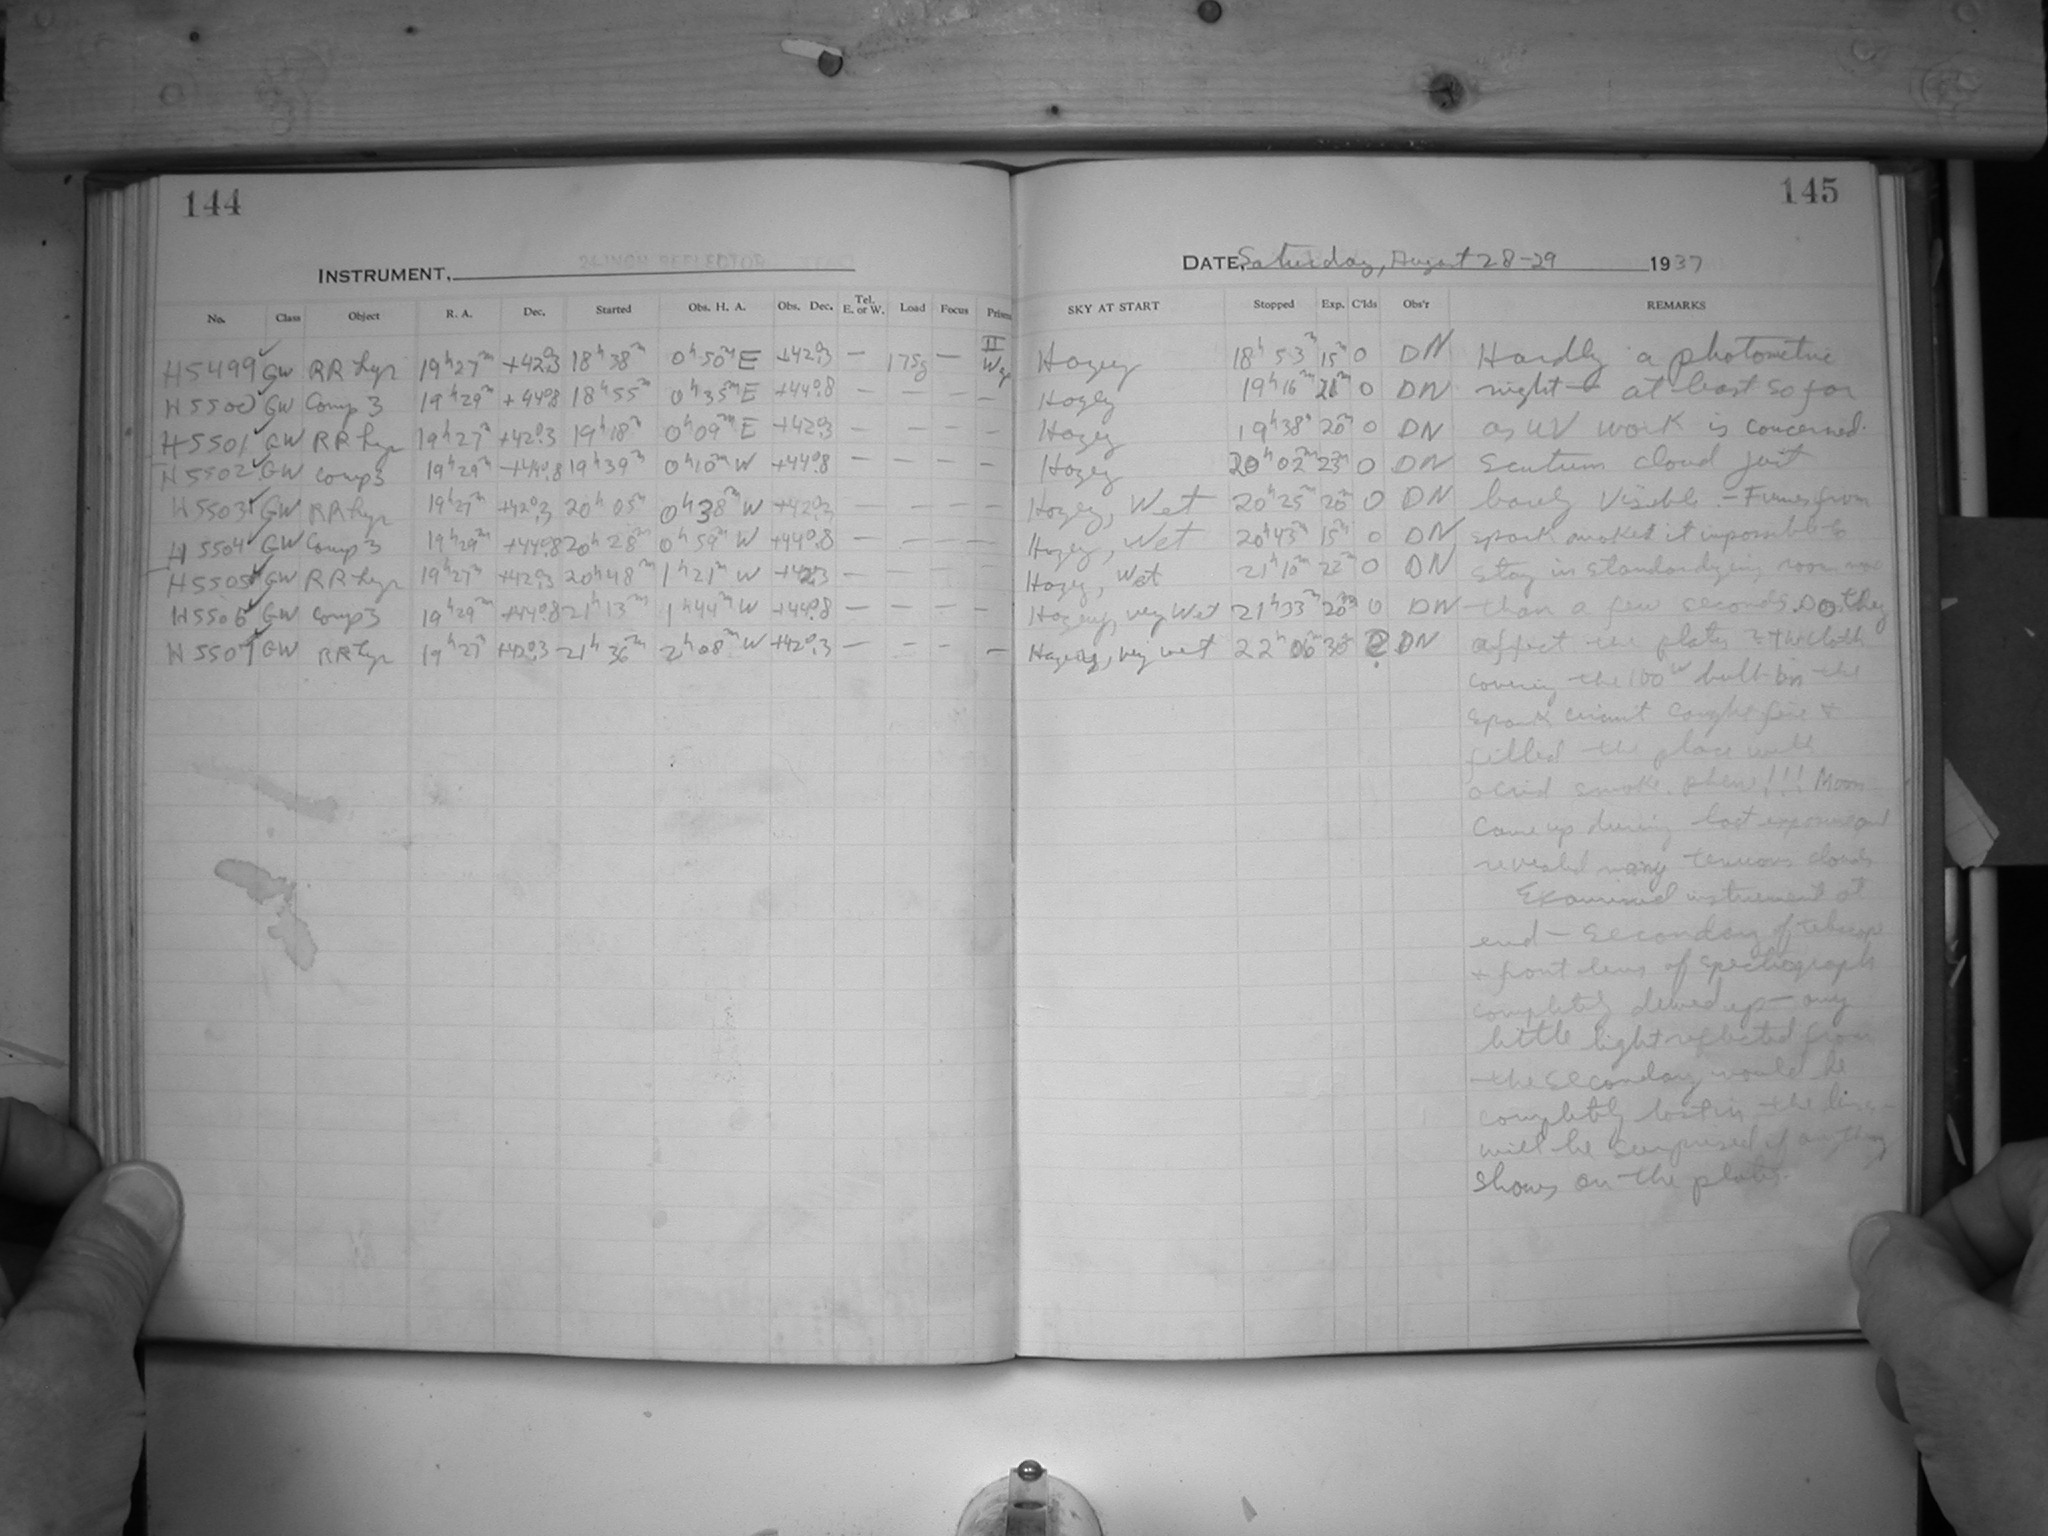 144
INSTRUMENT. 24 INCH REFLECTOR
No. Class Object R. A. Dec. Started Obs. H. A. Obs. Dec. Tel. E. or W. Load Focus Prism
II
H5499 ✓ GW RR Lyr 19h27m +42°.3 18h38m 0h50m E +42°.3 — 175g —
H5500 ✓ GW Comp 3 19h29m +44°.8 18h55m 0h35m E +44°.8 — — — —
H5501 ✓ GW RR Lyr 19h27m +42°.3 19h18m 0h09m E +42°.3 — — — —
H5502 ✓ GW Comp 3 19h29m +44°.8 19h39m 0h10m W +44°.8 — — — —
H5503 ✓ GW RR Lyr 19h27m +42°.3 20h05m 0h38m W +42°.3 — — — —
H5504 ✓ GW Comp 3 19h29m +44°.8 20h28m 0h59m W +44°.8 — — — —
H5505 ✓ GW RR Lyr 19h27m +42°.3 20h48m 1h21m W +42°.3 — — — —
H5506 ✓ GW Comp 3 19h29m +44°.8 21h13m 1h44m W +44°.8 — — — —
H5507 ✓ GW RR Lyr 19h27m +42°.3 21h36m 2h08m W +42°.3 — — — —
145
DATE, Saturday, August 28-29 1937
SKY AT START Stopped Exp. C'lds Obs'r REMARKS
Hazey 18h53m 15m 0 DN Hardly a photometric
Hazey 19h16m 21m 0 DN night — at least so far
Hazey 19h38m 20m 0 DN as UV work is concerned.
Hazey 20h02m 23m 0 DN Scutum cloud just
Hazey, Wet 20h25m 20m 0 DN barely visible. – Fumes from
Hazey, Wet 20h43m 15m 0 DN spark makes it impossible to
Hazey, Wet 21h10m 22m 0 DN stay in standardizing room more
Hazey, very Wet 21h33m 20m 0 DN than a few seconds. Do they
Hazey, very wet 22h06m 30m ? DN affect the plates? The cloth
covering the 100w bulb in the
spark circuit caught fire &
filled the place with
acrid smoke. phew!!! Moon
came up during last exposure and
revealed many tenuous clouds
Examined instrument at
end — secondary of telescope
& front lens of spectrograph
completely dewed up — any
little light reflected from
the secondary would be
completely lost in the lens –
will be surprised if anything
shows on the plates.